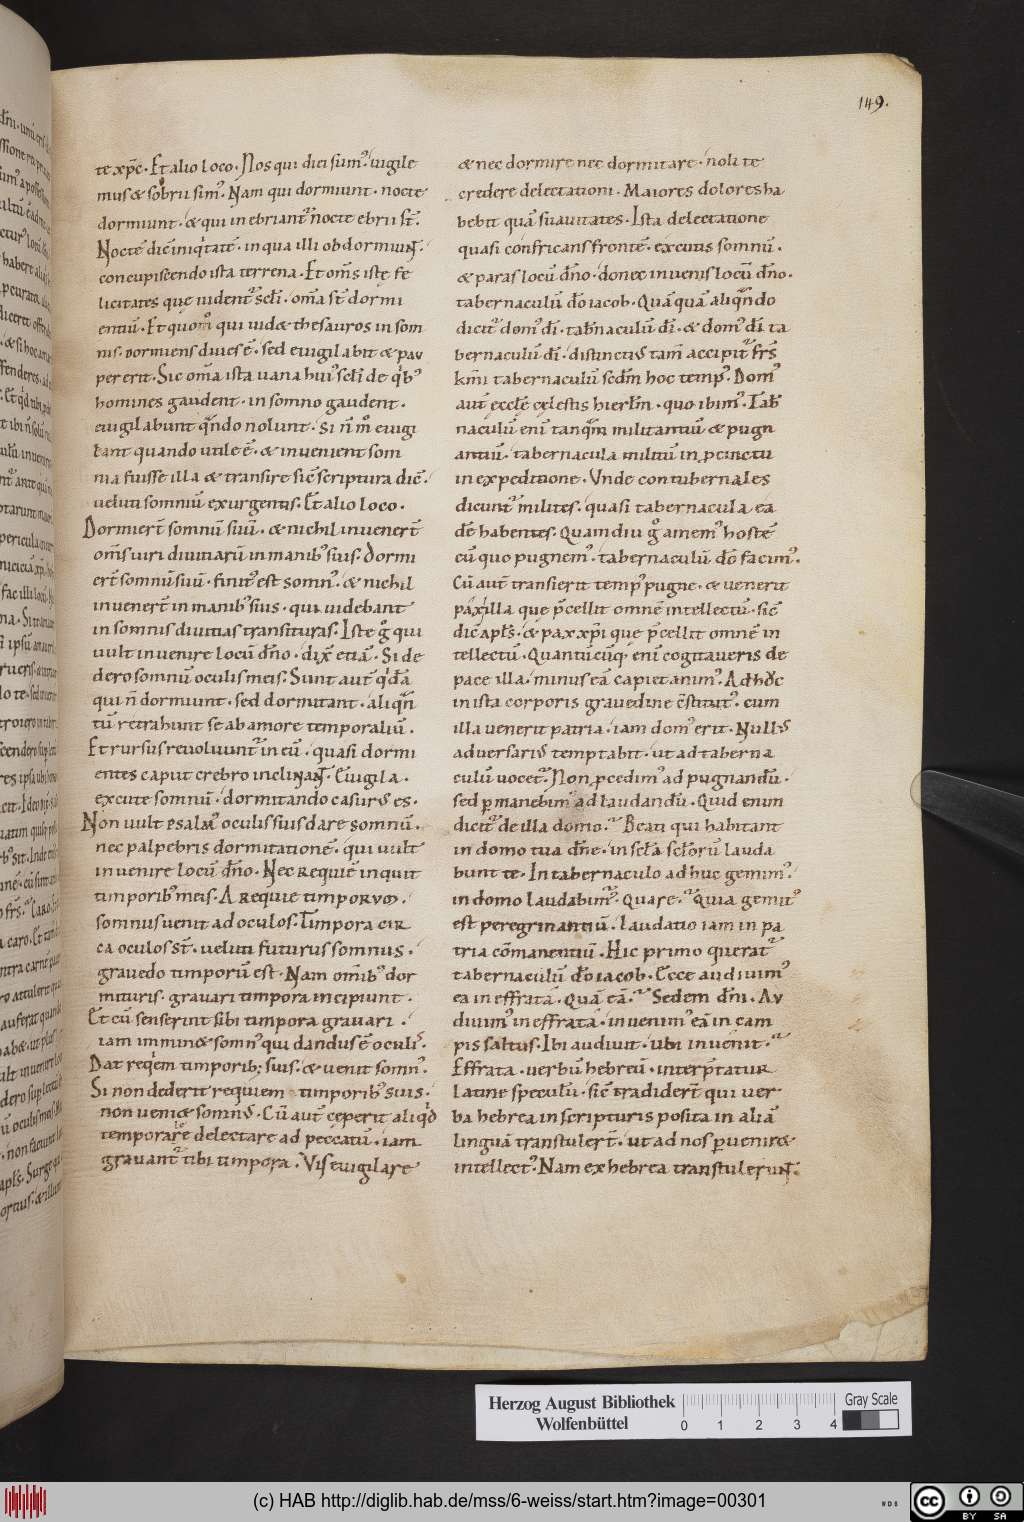 149.
te xp̄c · Et alio loco · Nos qui diei sum᷒ · uigile
mus & sobrii sim᷒ · Nam qui dormiunt · nocte
dormiunt · & qui inebriant᷑ nocte ebrii st̄ ·
Noctē diē iniq̇tatē · in qua illi obdormiunt ·
concupiscendo ista terrena · Et om̄s istę fe
licitates quę uident᷑ sc̄li · om̄a st̄ dormi
entiū · Et quom̊ qui uid& thesauros in som
nis · dormiens diues ē · sed euigilabit & pau
per erit · Sic om̄a ista uana hui᷒ sc̄li de q̇b᷒
homines gaudent · in somno gaudent ·
euigilabunt q̄ndo nolunt · si n̄ m̊ euigi
lant quando utile ē · & inuenient som
nia fuisse illa & transire sic̄ scriptura dic̄ ·
ueluti somniū exurgentis · Et alio loco ·
Dormier̄ somnū suū · & nichil inuener̄
om̄s uiri diuitiarū in manib᷒ suis · Dormi
er̄ somnū suū · finit᷒ est somn᷒ · & nichil
inuener̄ in manib᷒ suis · qui uidebant
in somnis diuitias transituras · Iste g̊ qui
uult inuenire locū dn̄o · dix̄ etiā · Si de
dero somnū oculis meis · Sunt aut̄ q̇dā
qui n̄ dormiunt · sed dormitant · aliqn̄
tū retrahunt se ab amore temporaliū ·
Et rursus reuoluunt᷑ in eū · quasi dormi
entes caput crebro inclinant · Euigila ·
excute somnū · dormitando casur᷒ es ·
Non uult psalm᷒ oculis suis dare somnū ·
nec palpebris dormitationē · qui uult
inuenire locū dn̄o · Nec requiē inquit
timporib᷒ meis · A requie timporum ·
somnus uenit ad oculos · Timpora cir
ca oculos st̄ · ueluti futurus somnus ·
grauedo timporū est · Nam om̄ib᷒ dor
mituris · grauari timpora incipiunt ·
Et cū senserint sibi timpora grauari ·
iam immin& somn᷒ qui dandus ē oculis ·
Dat reqiē timporib; suis · & uenit somn᷒ ·
Si non dederit requiem timporib᷒ suis ·
non ueni& somn᷒ · Cū aut̄ ceperit aliq̇d
temporale delectare ad peccatū · iam
grauant᷑ tibi timpora · Vis euigilare
& nec dormire nec dormitare · noli te
credere delectationi · Maiores dolores ha
bebit quā suauitates · Ista delectatione
quasi confricans frontē · excutis somnū ·
& paras locū dn̄o · donec inuenis locū dn̄o ·
tabernaculū dō iacob · Quāquā aliqn̄do
dicit᷑ dom᷒ dī · tab̄naculū dī · & dom᷒ dī ta
bernaculū dī · distincti᷒ tam̄ accipit᷑ fr̄s
km̄i tabernaculū scdm̄ hoc temp᷒ · Dom᷒
aut̄ eccl̄e cęlestis hierl̄m · quo ibim᷒ · Tab̄
naculū enī tanq̄m militantiū & pugn
antiū · tabernacula militū in ꝓcinctu
in expeditione · Vnde contubernales
dicunt᷑ milites · quasi tabernacula ea
dē habentes · Quamdiu g̊ amem᷒ hostē
cū quo pugnem᷒ · tabernaculū dō facim᷒ ·
Cū aut̄ transierit temp᷒ pugne · & uenerit
pax illa que p̄cellit omnē intellectū · sic̄
dic̄ apl̄s · & pax xp̄i que p̄cellit omnē in
tellectū · Quantūcūq; enī cogitaueris de
pace illa · minus eā capiet anim᷒ · Adhuc
in ista corporis grauedine c̄stitut᷒ · cum
illa uenerit patria · iam dom᷒ erit · Null᷒
aduersari᷒ temptabit · ut ad taberna
culū uocet᷑ · Non ꝓcedim᷒ ad pugnandū ·
sed ꝑmanebim᷒ ad laudandū · Quid enim
dicit᷑ de illa domo · Beati qui habitant
in domo tua dn̄e · in scl̄a scl̄orū lauda
bunt te · In tabernaculo adhuc gemim᷒ ·
in domo laudabim᷒ · Quare · Quia gemit᷒
est peregrinantiū · Laudatio iam in pa
tria cōmanentiū · Hic primo querat᷑
tabernaculū dō iacob · Ecce audiuim᷒
ea in effratā · Quā eā · Sedem dn̄i · Au
diuim᷒ in effratā · inuenim᷒ eā in cam
pis saltus · Ibi audiuit · ubi inuenit ·
Effrata · uerbū hebreū · interp̄tatur
latine speculū · sic̄ tradider̄ qui uer
ba hebrea in scripturis posita in aliā
linguā transtuler̄ · ut ad nos ꝑuenir&
intellect᷒ · Nam ex hebrea transtulerunt ·
Herzog August Bibliothek
Wolfenbüttel
0 1 2 3 4
Gray Scale
(c) HAB http://diglib.hab.de/mss/6-weiss/start.htm?image=00301
cc BY SA